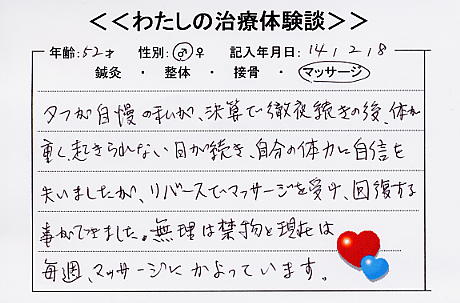 <<わたしの治療体験談>>
年齢:52才 性別:♂♀ 記入年月日:14/2/8
鍼灸 ・ 整体 ・ 接骨 ・ マッサージ
タフが自慢の私が、決算で徹夜続きの後、体が
重く起きられない日が続き、自分の体力に自信を
失いましたが、リバースでマッサージを受け、回復する
事ができました。無理は禁物と現在は
毎週、マッサージにかよっています。